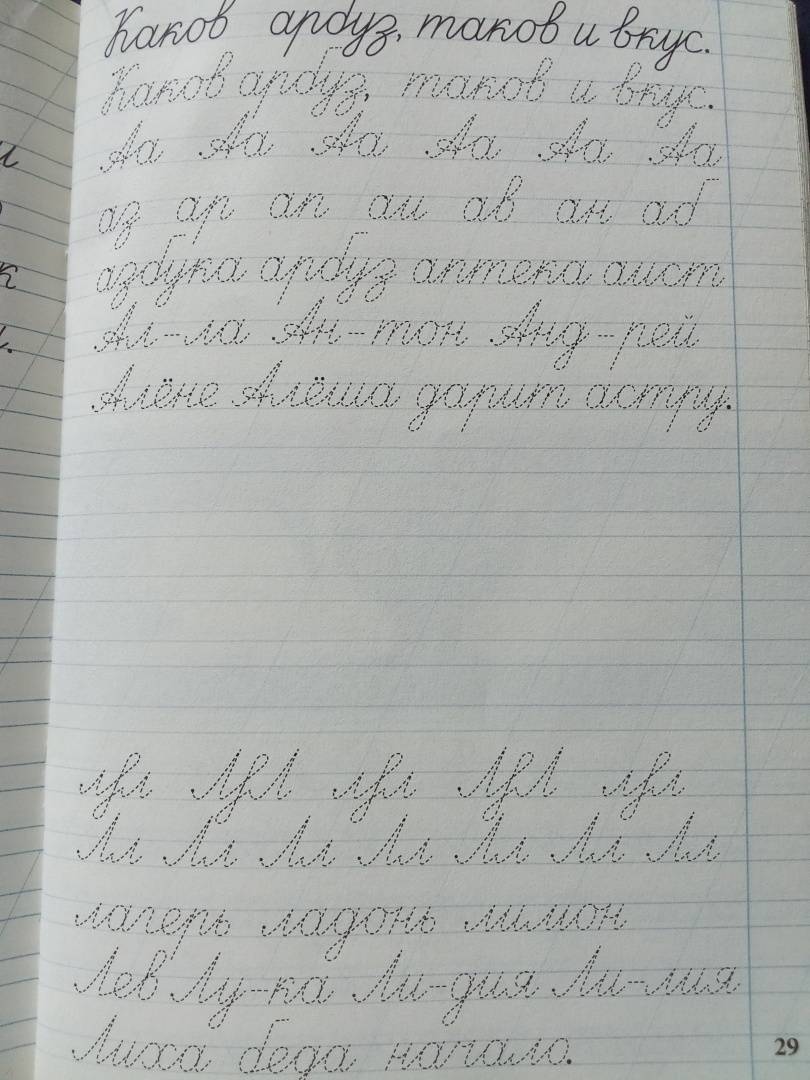 Каков арбуз, таков и вкус.
Каков арбуз, таков и вкус.
Аа Аа Аа Аа Аа Аа
аз ар ап аи ав ан аб
азбука арбуз аптека аист
Ал-ла Ан-тон Анд-рей
Алёне Алёша дарит астру.
Лл Лл Лл Лл Лл Лл Лл
лагерь ладонь лимон
Лев Лу-ка Ли-дия Ли-лия
Лиха беда начало.
29